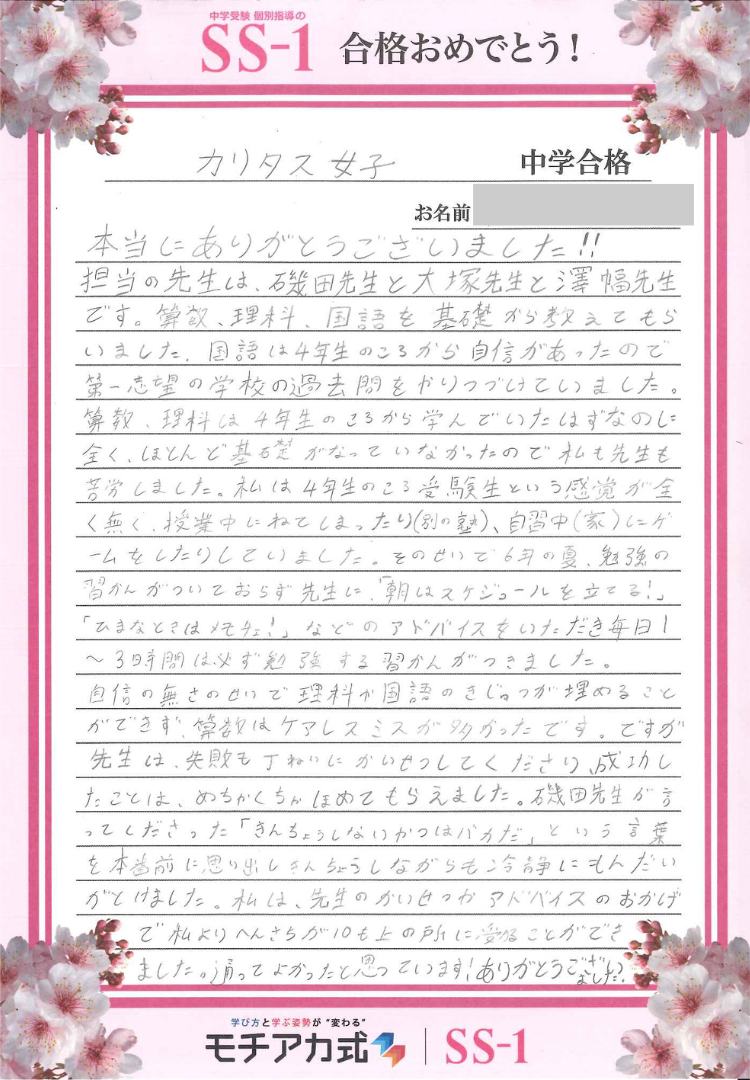 中学受験 個別指導の
SS-1 合格おめでとう!
カリタス女子 中学合格
お名前
本当にありがとうございました!!
担当の先生は、磯田先生と大塚先生と澤幡先生
です。算数、理科、国語を基礎から教えてもら
いました。国語は4年生のころから自信があったので
第一志望の学校の過去問をやりつづけていました。
算数、理科は4年生のころから学んでいたはずなのに
全く、ほとんど基礎がなっていなかったので私も先生も
苦労しました。私は4年生のころ受験生という感覚が全
く無く、授業中にねてしまったり(別の塾)、自習中(家)にゲ
ームをしたりしていました。そのせいで6年の夏、勉強の
習かんがついておらず先生に、「朝はスケジュールを立てる!」
「ひまなときはメモチェ!」などのアドバイスをいただき毎日1
~3時間は必ず勉強する習かんがつきました。
自信の無さのせいで理科や国語のきじゅつが埋めること
ができず、算数はケアレスミスが多かったです。ですが
先生は、失敗も丁ねいにかいせつしてくださり、成功し
たことは、めちゃくちゃほめてもらえました。磯田先生が言
ってくださった「きんちょうしないやつはバカだ」という言葉
を本番前に思い出しきんちょうしながらも冷静にもんだい
がとけました。私は、先生のかいせつやアドバイスのおかげ
で私よりへんさちが10も上の所に受かることができ
ました。通ってよかったと思っています!ありがとうございました。
学び方と学ぶ姿勢が“変わる”
モチアカ式 SS-1